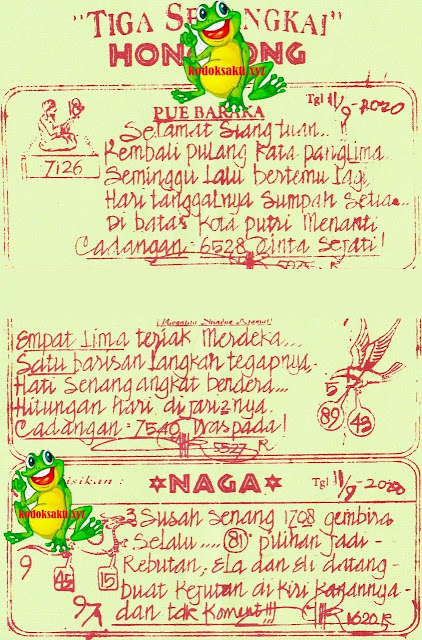 "TIGA SERANGKAI"
HONGKONG
kodoksakti.xyz
PUE BARAKA
Tgl 11/9-2020
18
7126
Selamat Siang tuan..
Kembali pulang kata panglima
Seminggu Lalu bertemu Lagi
Hari tanggalnya Sumpah Setia...
Di batas kota putri Menanti
Cadangan : 6528 Cinta Sejati!
Empat Lima teriak Merdeka...
Satu barisan Langkah tegapnya.
Hati Senang angkat bendera...
Hitungan Hari di jari2nya.
Cadangan : 7540 Waspada!
5527 R
5
89
43
isikan :
NAGA
Tgl 11/9-2020
kodoksakti.xyz
3 Susah Senang 1708 gembira
Selalu.... 81 pilihan Jadi-
Rebutan, Ela dan Eli datang-
buat Kejutan di Kiri Kanannya-
dan tak Koment!!!
1620 R
9
45
15
97